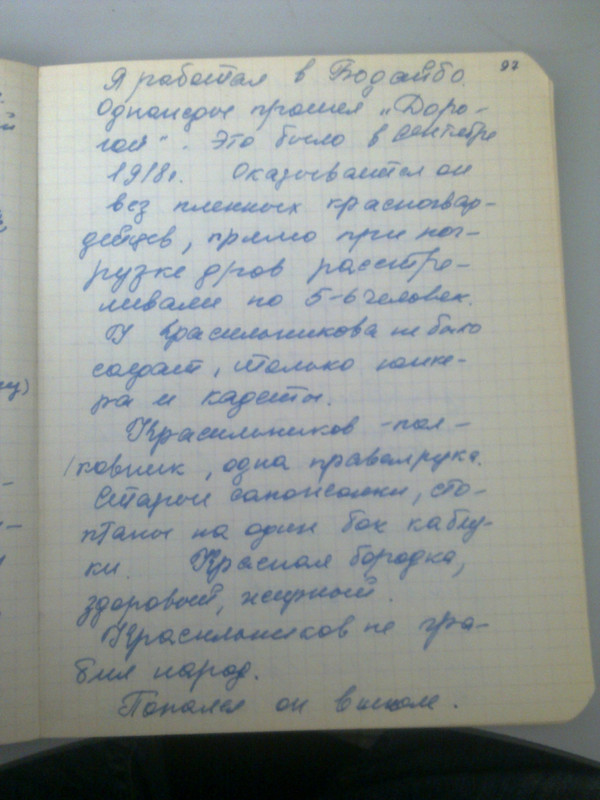 97
Я работал в Бодайбо.
Однажды прошел „Доро-
гой". Это было в сентябре
1918г. Оказывается он
вез пленных красногвар-
дейцев, прямо при пог-
рузке дров расстре-
ливали по 5-6 человек.
У Красильникова не было
солдат, только юнке-
ра и кадеты.
Красильников - пол-
ковник, одна правая рука.
Старые сапожонки, сто-
птаны на один бок каблу-
ки. Красная бородка,
здоровый, жирный.
Красильников не гра-
бил народ.
Попался он в